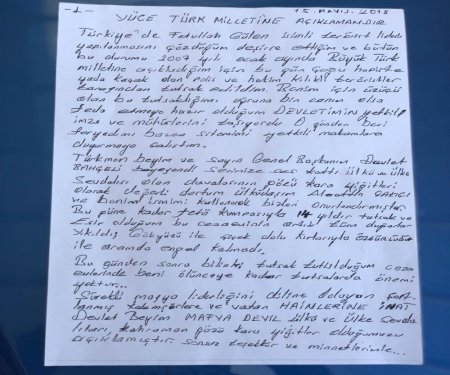 -1- 15. MAYIS. 2018
YÜCE TÜRK MİLLETİNE AÇIKLAMAMDIR
Türkiye'de Fetullah Gülen isimli terörist
yapılanmasını deşifre ettiğim ve bütün
bu durumu 2007 yılı ocak ayında Büyük Türk
milletine açıkladığım için bu gün çoğu hapiste
yada kaçak olan polis ve hakim kılıklı teröristler
tarafından tutsak edildim. Benim için üzücü
olan bu tutsaklığımı uğruna bin canım olsa
feda etmeye hazır olduğum DEVLETİMİN yetkili
imza ve mühürlerini taşıyordu. O günden beri
feryadımı bazen yetkili makamlara
duyurmaya çalıştım.
Türkmen Beyim ve sayın Genel Başkanım Devlet
BAHÇELİ beyefendi ses kattı ülkü ve ülke
Sevdalısı olan davalarının gözü kara yiğitleri
olarak değerli dostum ülküdaşım Alaattin ÇAKICI
ve benim ismimi kullanarak bizleri onurlandırmıştır.
Bu güne kadar fetö kumpasıyla 14 yıldır tutsak ve
Esir olduğum bu cezaevinin artık tüm duvarlar
Yıkıldı Gökyüzü ile çiçek dolu kırlarıyla özgürlüğüm
ile aramda engel kalmadı.
Bu günden sonra bilinki tutsak tutulduğum ceza
evlerinde beni ölünceye kadar tutsalarda önemi
yoktur...
Sürekli mafya liderliğini diline dolayan
ve vatan HAİNLERİNE İNAT
Devlet Beyim MAFYA DEĞİL ülkü ve ülke sevda
lıları, kahraman gözü kara yiğitler olduğumuzu
açıklamıştır. Sonsuz teşekkür ve minnetlerimle...